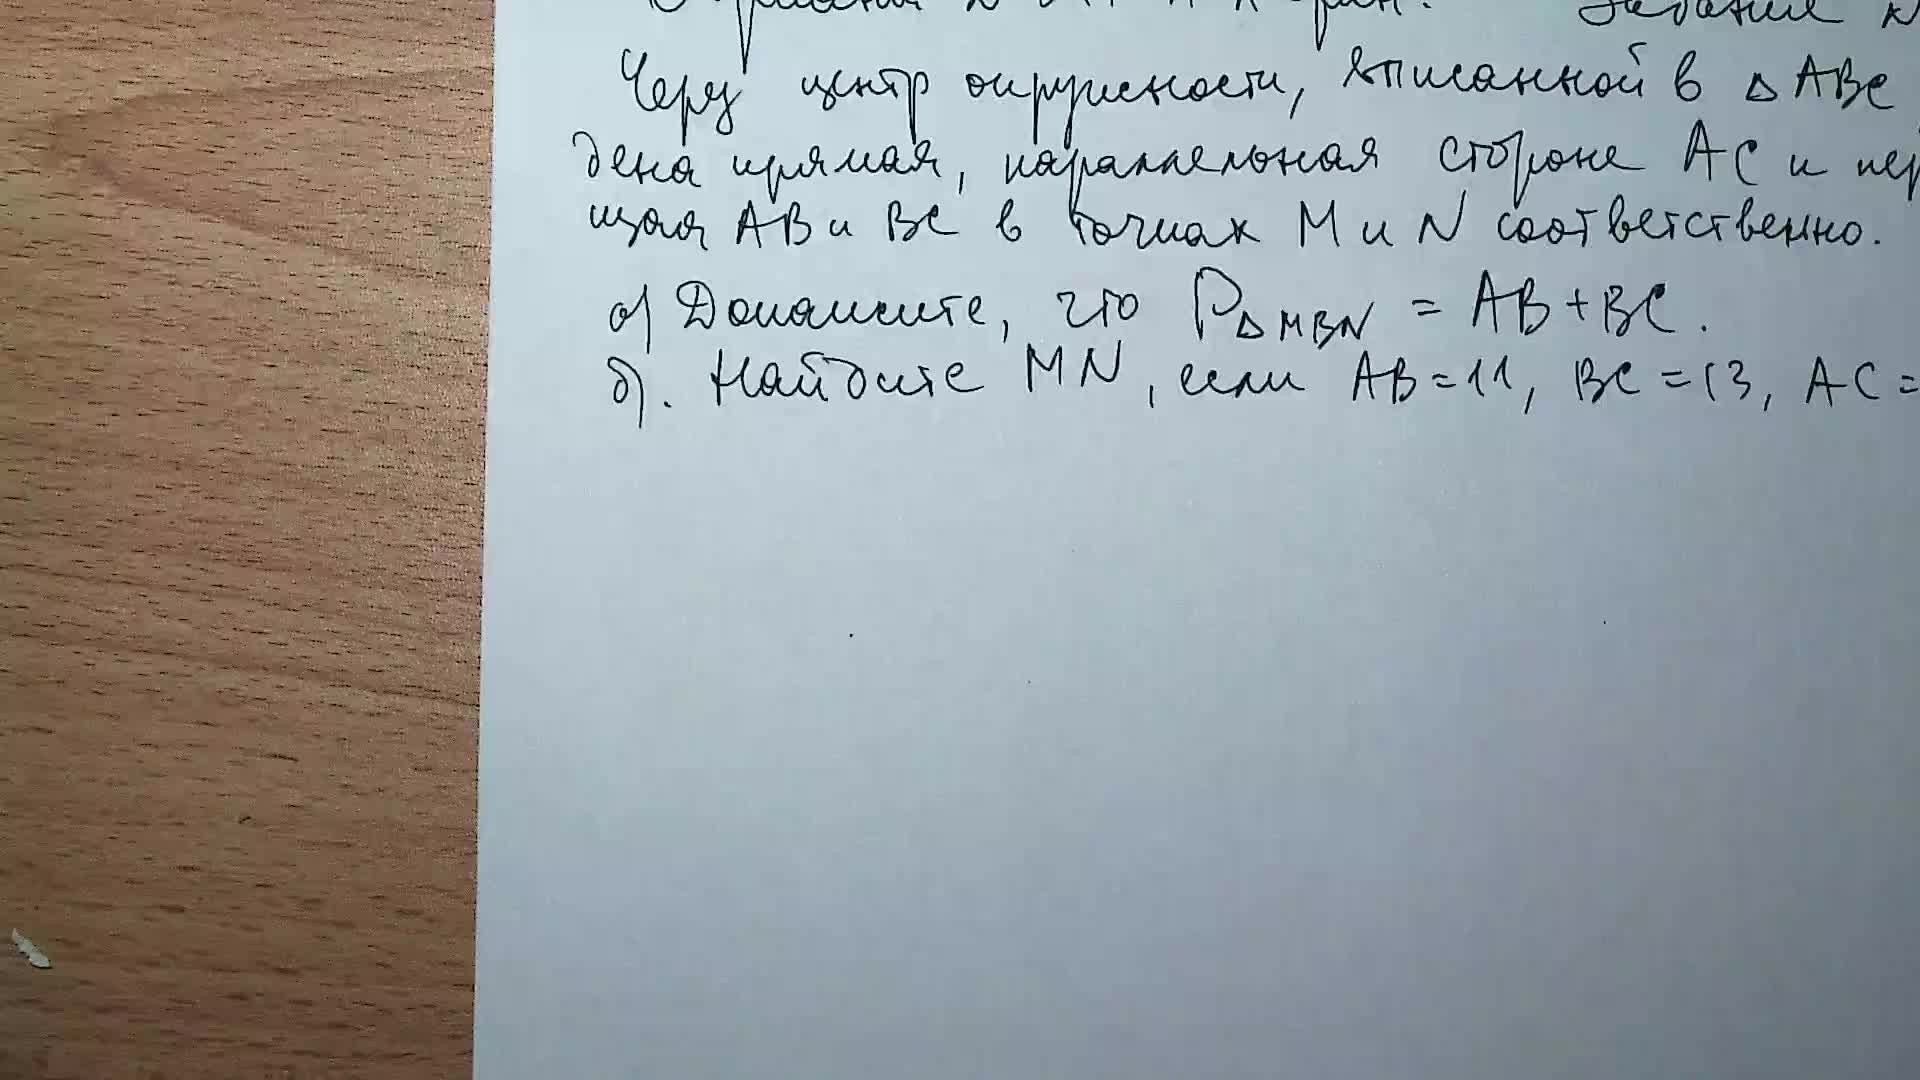 Задание
Через центр окружности, вписанной в △ ABC
дена прямая, параллельная стороне AC и пер
щая AB и BC в точках M и N соответственно.
а) Докажите, что P△MBN = AB + BC.
б). Найдите MN, если AB = 11, BC = 13, AC =